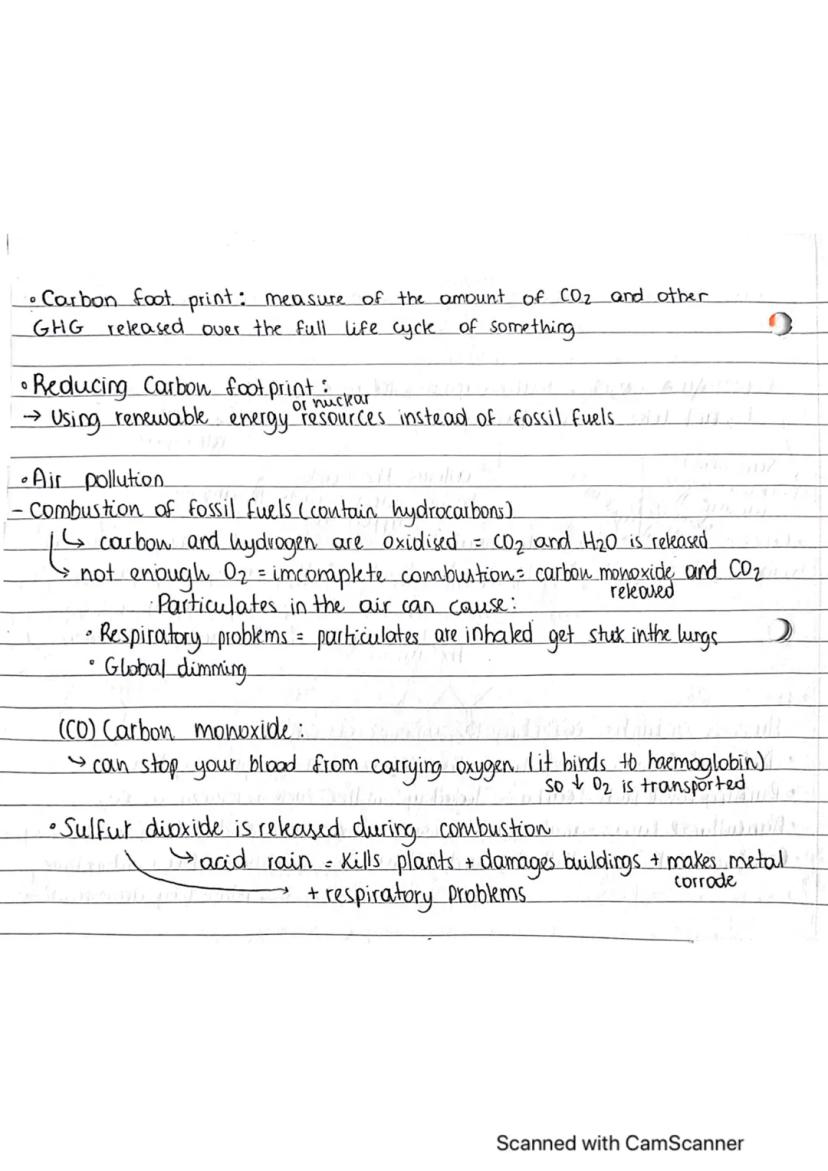 • Carbon foot print: measure of the amount of CO₂ and other
GHG released over the full life cycle of something
• Reducing Carbon footprint:
or nuclear
→ Using renewable energy resources instead of fossil fuels
• Air pollution
- Combustion of fossil fuels (contain hydrocarbons)
↳ carbon and hydrogen are oxidised = CO₂ and H₂O is released
↳ not enough O₂ = imcomplete combustion = carbon monoxide and CO₂
released
Particulates in the air can cause:
• Respiratory problems = particulates are inhaled get stuk in the lungs
• Global dimming
(CO) Carbon monoxide:
↳ can stop your blood from carrying oxygen (it binds to haemoglobin)
so ↓ O₂ is transported
• Sulfur dioxide is released during combustion
↳ acid rain = kills plants + damages buildings + makes metal
corrode
→ + respiratory problems
Scanned with CamScanner